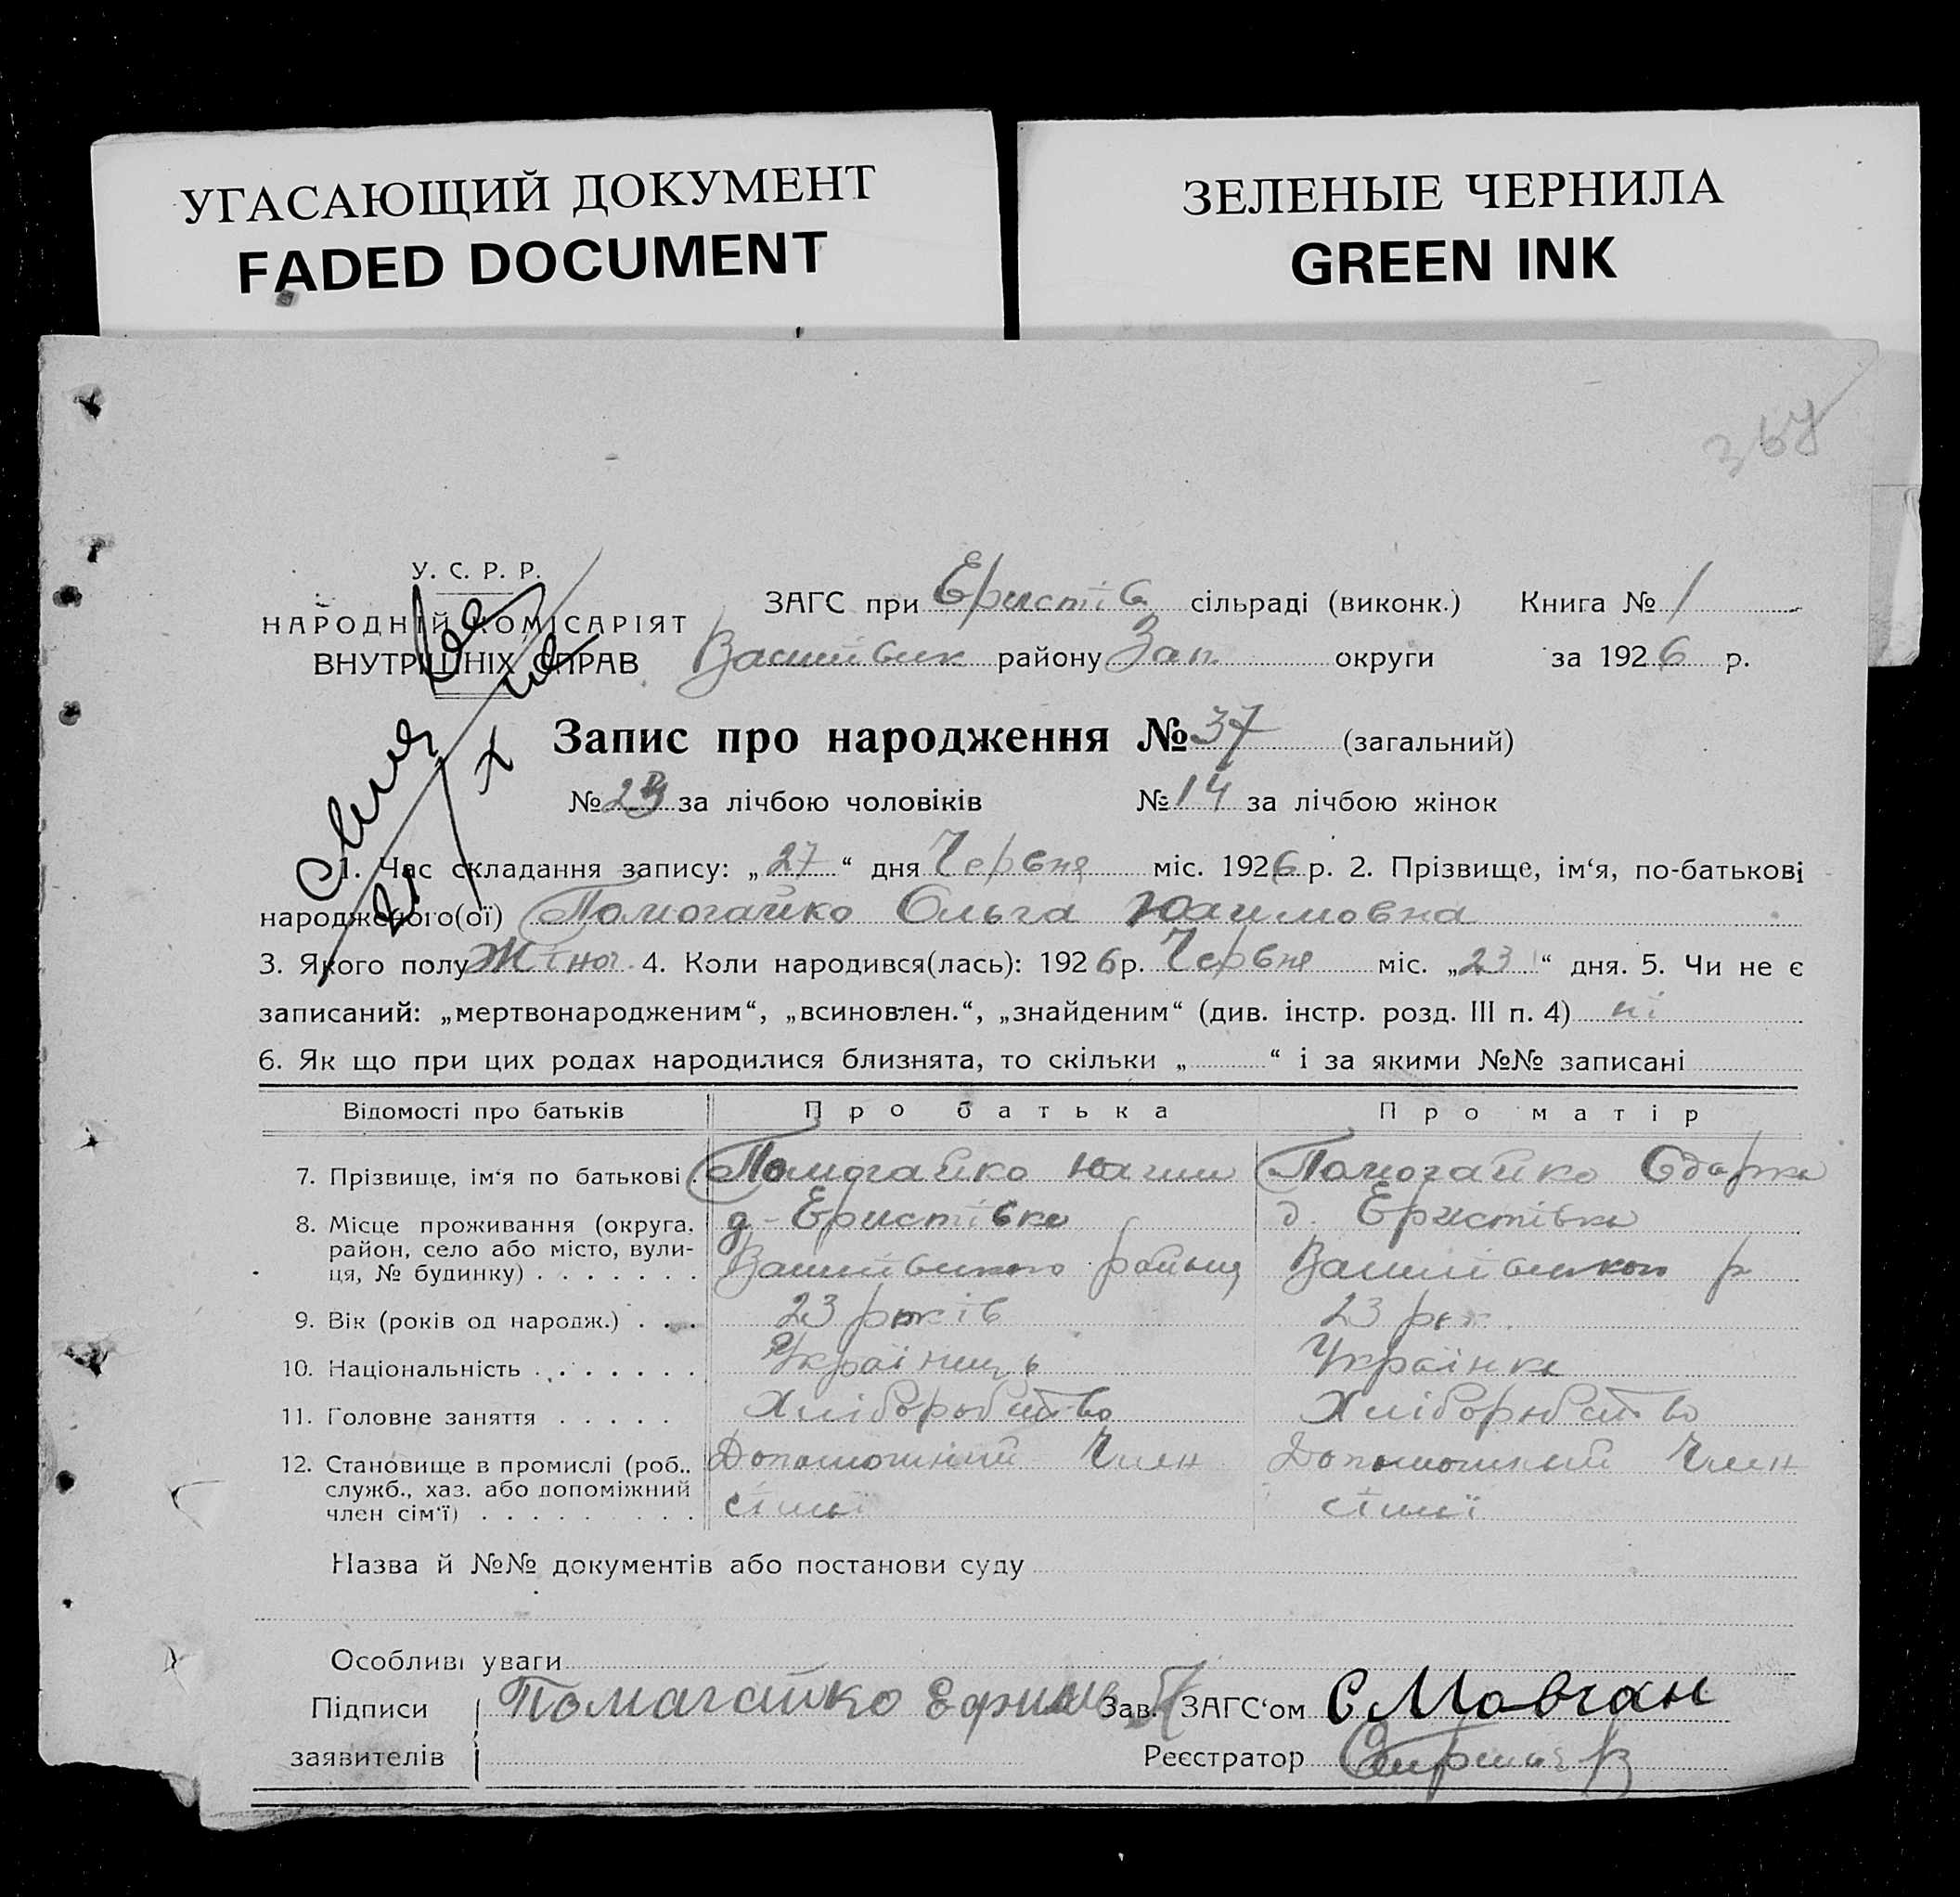 УГАСАЮЩИЙ ДОКУМЕНТ
FADED DOCUMENT
ЗЕЛЕНЫЕ ЧЕРНИЛА
GREEN INK
У. С. Р. Р.
НАРОДНІЙ КОМІСАРІЯТ
ВНУТРІШНІХ СПРАВ
ЗАГС при Ериспів сільраді (виконк.) Книга № 1
Василівськ району Зап. округи за 1926 р.
Запис про народження № 37 (загальний)
№ 23 за лічбою чоловіків № 14 за лічбою жінок
1. Час складання запису: „27“ дня Червня міс. 1926 р. 2. Прізвище, ім‘я, по-батькові
народженого(ої) Помогайко Ольга Юхимовна
3. Якого полу Жіноч. 4. Коли народився(лась): 1926 р. Червня міс. „23“ дня. 5. Чи не є
записаний: „мертвонародженим“, „всиновлен.“, „знайденим“ (див. інстр. розд. III п. 4) ні
6. Як що при цих родах народилися близнята, то скільки „ “ і за якими №№ записані
Відомості про батьків Про батька Про матір
7. Прізвище, ім‘я по батькові. Помогайко Юхим Помогайко Одарка
8. Місце проживання (округа, район, село або місто, вулиця, № будинку) д. Еристівка д. Еристівка
Василівського району Василівського р
9. Вік (років од народж.) 23 років 23 рок.
10. Національність Українець Українка
11. Головне заняття Хліборобство Хліборобство
12. Становище в промислі (роб., служб., хаз. або допоміжний член сім‘ї) Допоможний Член Допоможный Член
сімї сімї
Назва й №№ документів або постанови суду
Особливі уваги
Підписи Помагайко Ефим Зав. ЗАГС‘ом С Мовчан
заявителів Реєстратор